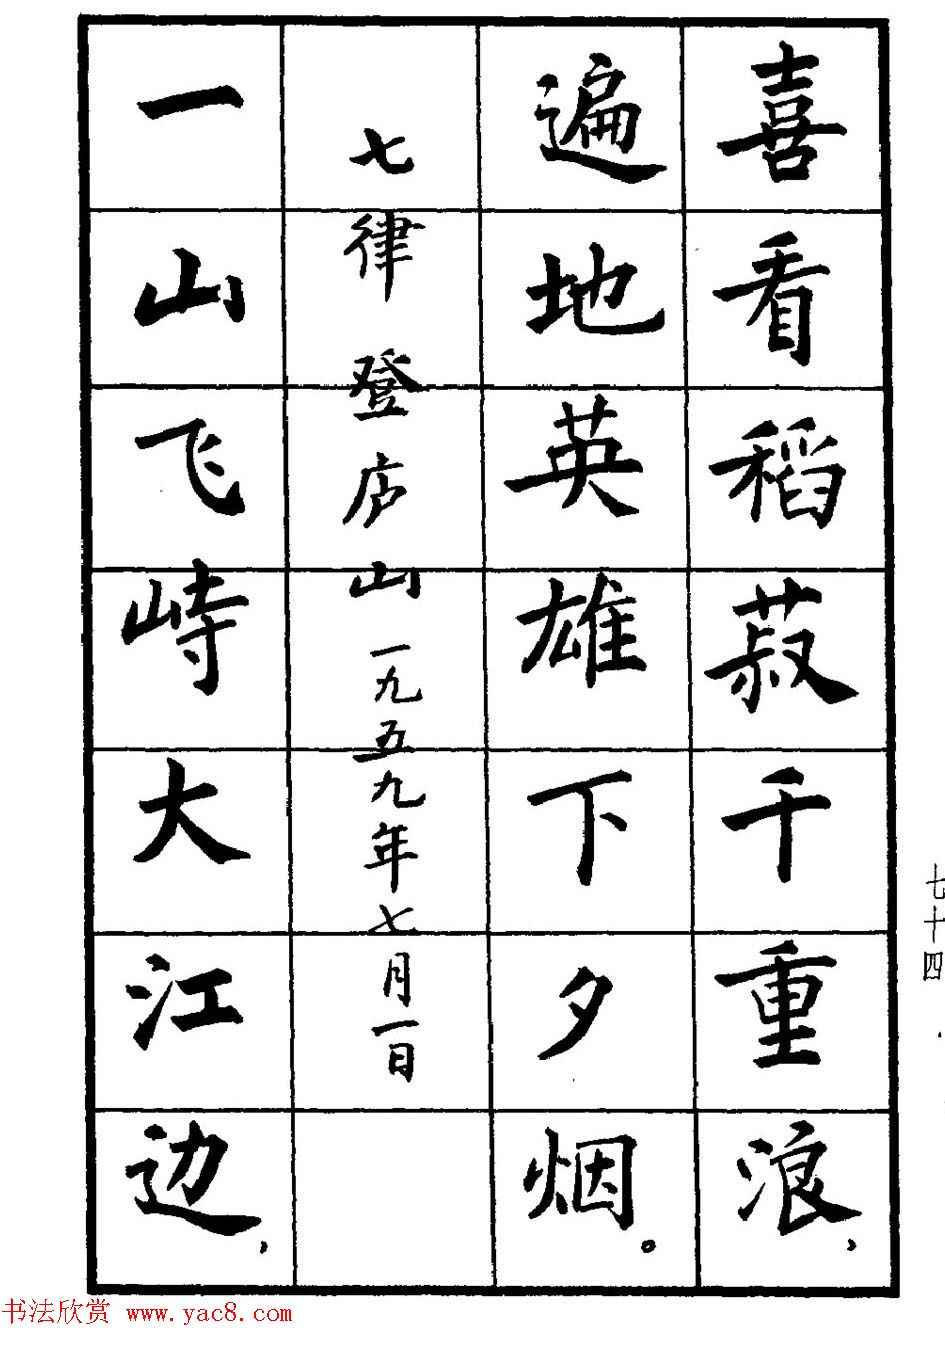 喜看稻菽千重浪，
遍地英雄下夕烟。
七律 登庐山 一九五九年七月一日
一山飞峙大江边，
七十四
书法欣赏 www.yac8.com